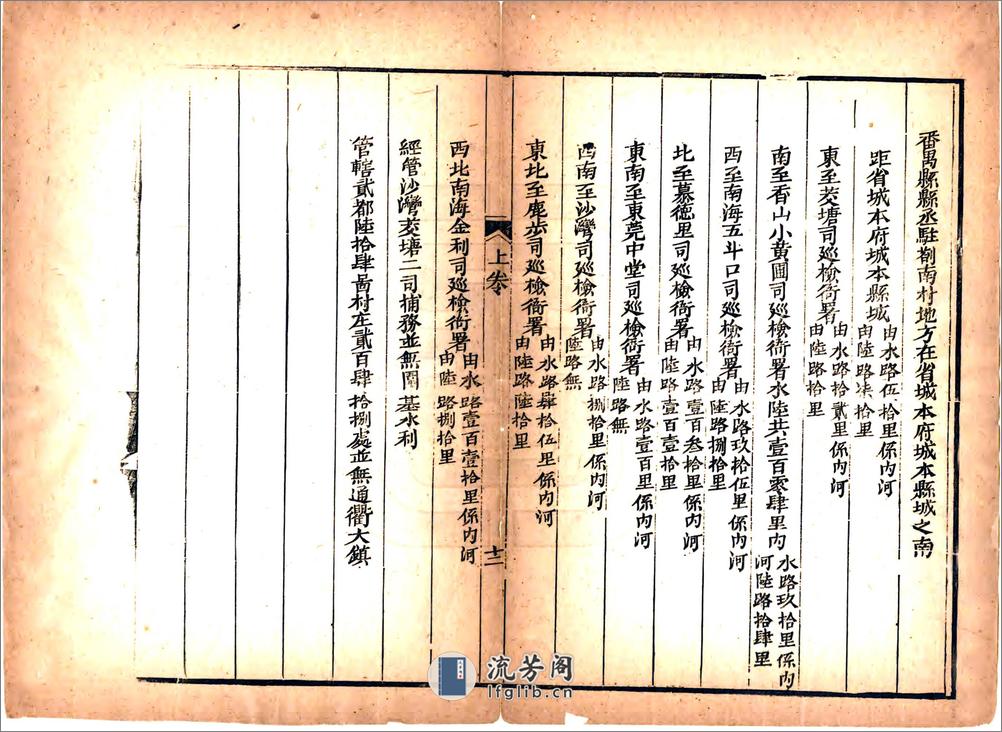 番禺縣縣丞駐劄南村地方在省城本府城本縣城之南
距省城本府城本縣城由水路伍拾里係內河
由陸路柒拾里
東至茭塘司巡檢衙署由水路拾貳里係內河
由陸路拾里
南至香山小黃圃司巡檢衙署水陸共壹百零肆里內水路玖拾里係內
河陸路拾肆里
西至南海五斗口司巡檢衙署由水路玖拾伍里係內河
由陸路捌拾里
北至慕德里司巡檢衙署由水路壹百叁拾里係內河
由陸路壹百壹拾里
東南至東莞中堂司巡檢衙署由水路壹百里係內河
陸路無
西南至沙灣司巡檢衙署由水路捌拾里係內河
陸路無
東北至鹿步司巡檢衙署由水路肆拾伍里係內河
由陸路陸拾里
上叅
十二
西北南海金利司巡檢衙署由水路壹百壹拾里係內河
由陸路捌拾里
經管沙灣茭塘二司捕務並無圍基水利
管轄貳都陸拾肆啚村庄貳百肆拾捌處並無通衢大鎮
流芳阁
lfglib.cn